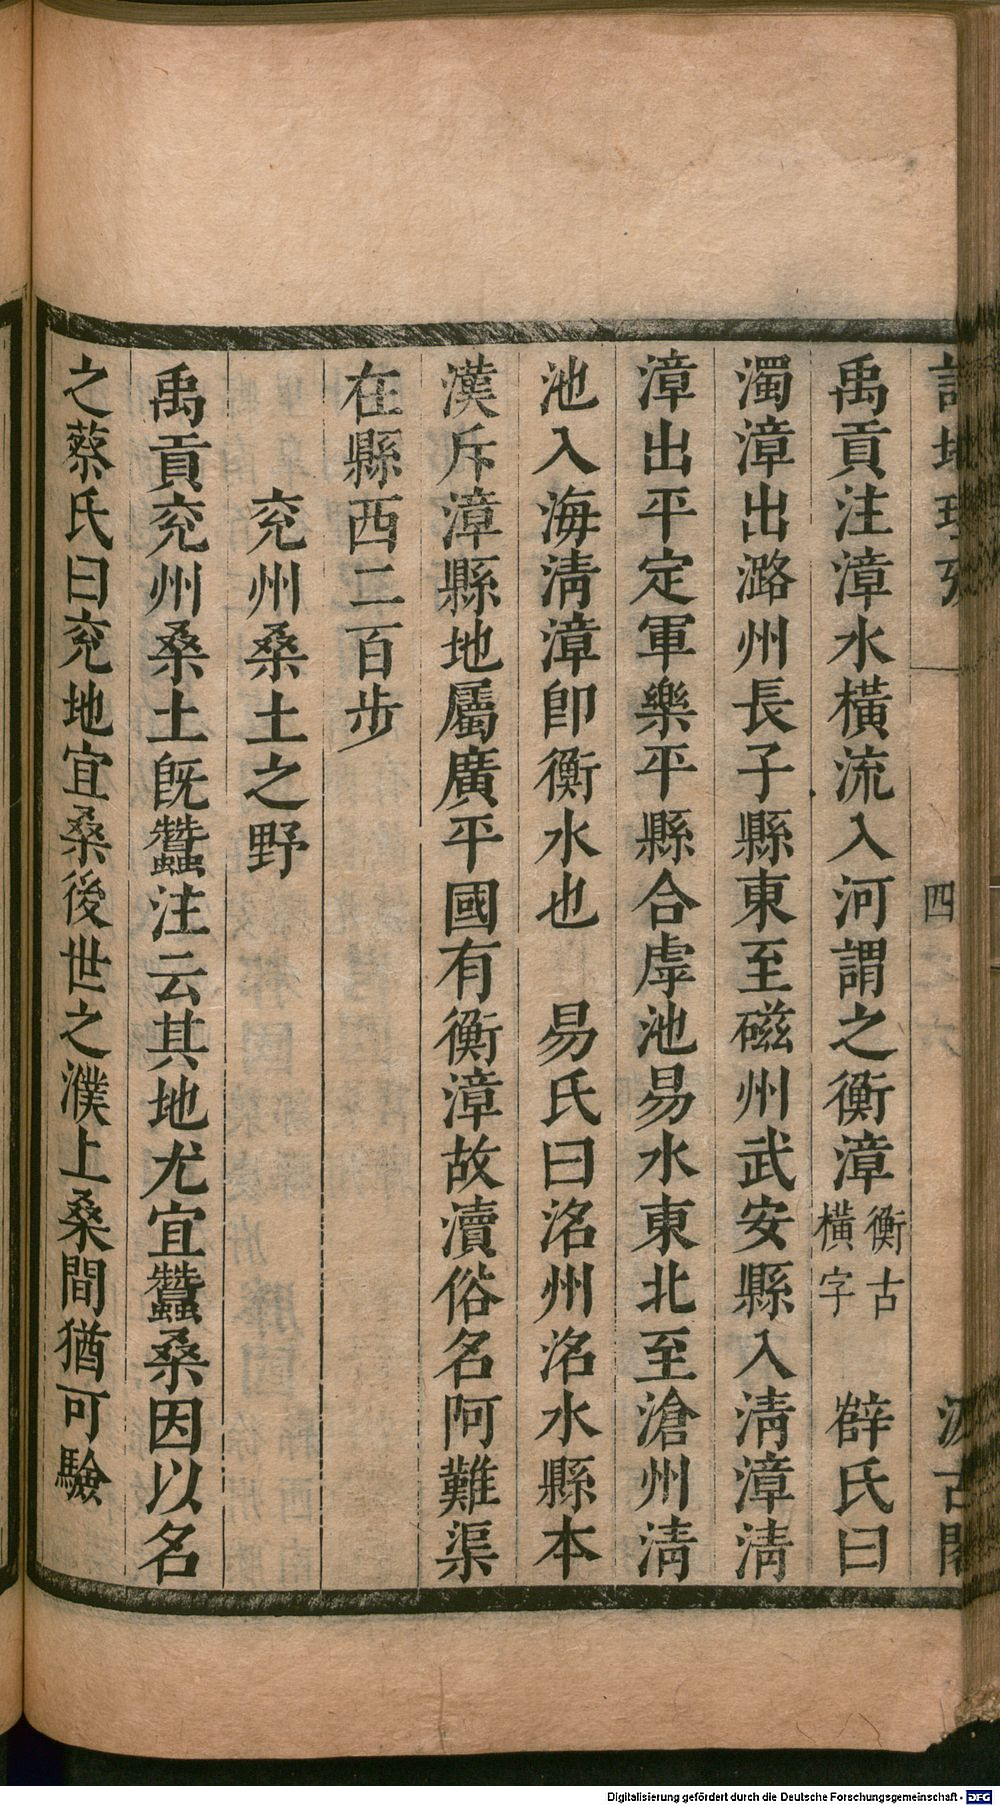 詩地理攷 四 汲古閣
禹貢注漳水橫流入河謂之衡漳衡古橫字 薛氏曰
濁漳出潞州長子縣東至磁州武安縣入淸漳淸
漳出平定軍樂平縣合虖池易水東北至滄州淸
池入海淸漳卽衡水也 易氏曰洺州洺水縣本
漢斥漳縣地屬廣平國有衡漳故瀆俗名阿難渠
在縣西二百步
兖州桑土之野
禹貢兖州桑土旣蠶注云其地尤宜蠶桑因以名
之蔡氏曰兖地宜桑後世之濮上桑間猶可驗
Digitalisierung gefördert durch die Deutsche Forschungsgemeinschaft - DFG